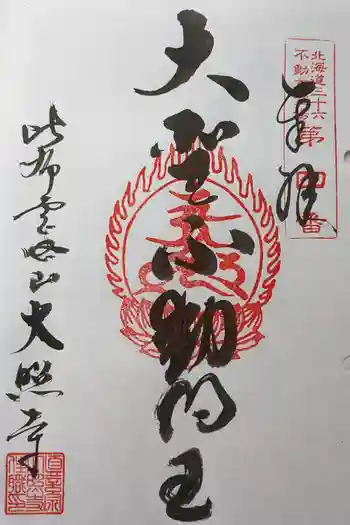 北海道三十六
不動
第四番
奉拝
大聖不動明王
比布霊山大照寺